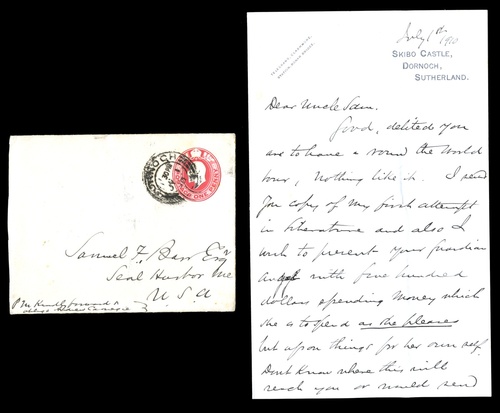 DORNOCH
ONE PENNY
Samuel F. Barr Esq
Seal Harbor Me
U.S.A.
P.M. Kindly forward &
oblige Andrew Carnegie
July 1st 1910
SKIBO CASTLE,
DORNOCH,
SUTHERLAND.
Dear Uncle Sam.
Good, delited you
are to have a round the World
tour, Nothing like it. I send
you copy of my first attempt
in literature and also I
wish to present your Guardian
angel with five hundred
dollars spending money which
she is to spend as she pleases
but upon things for her own self.
Dont Know where this will
reach you or would send